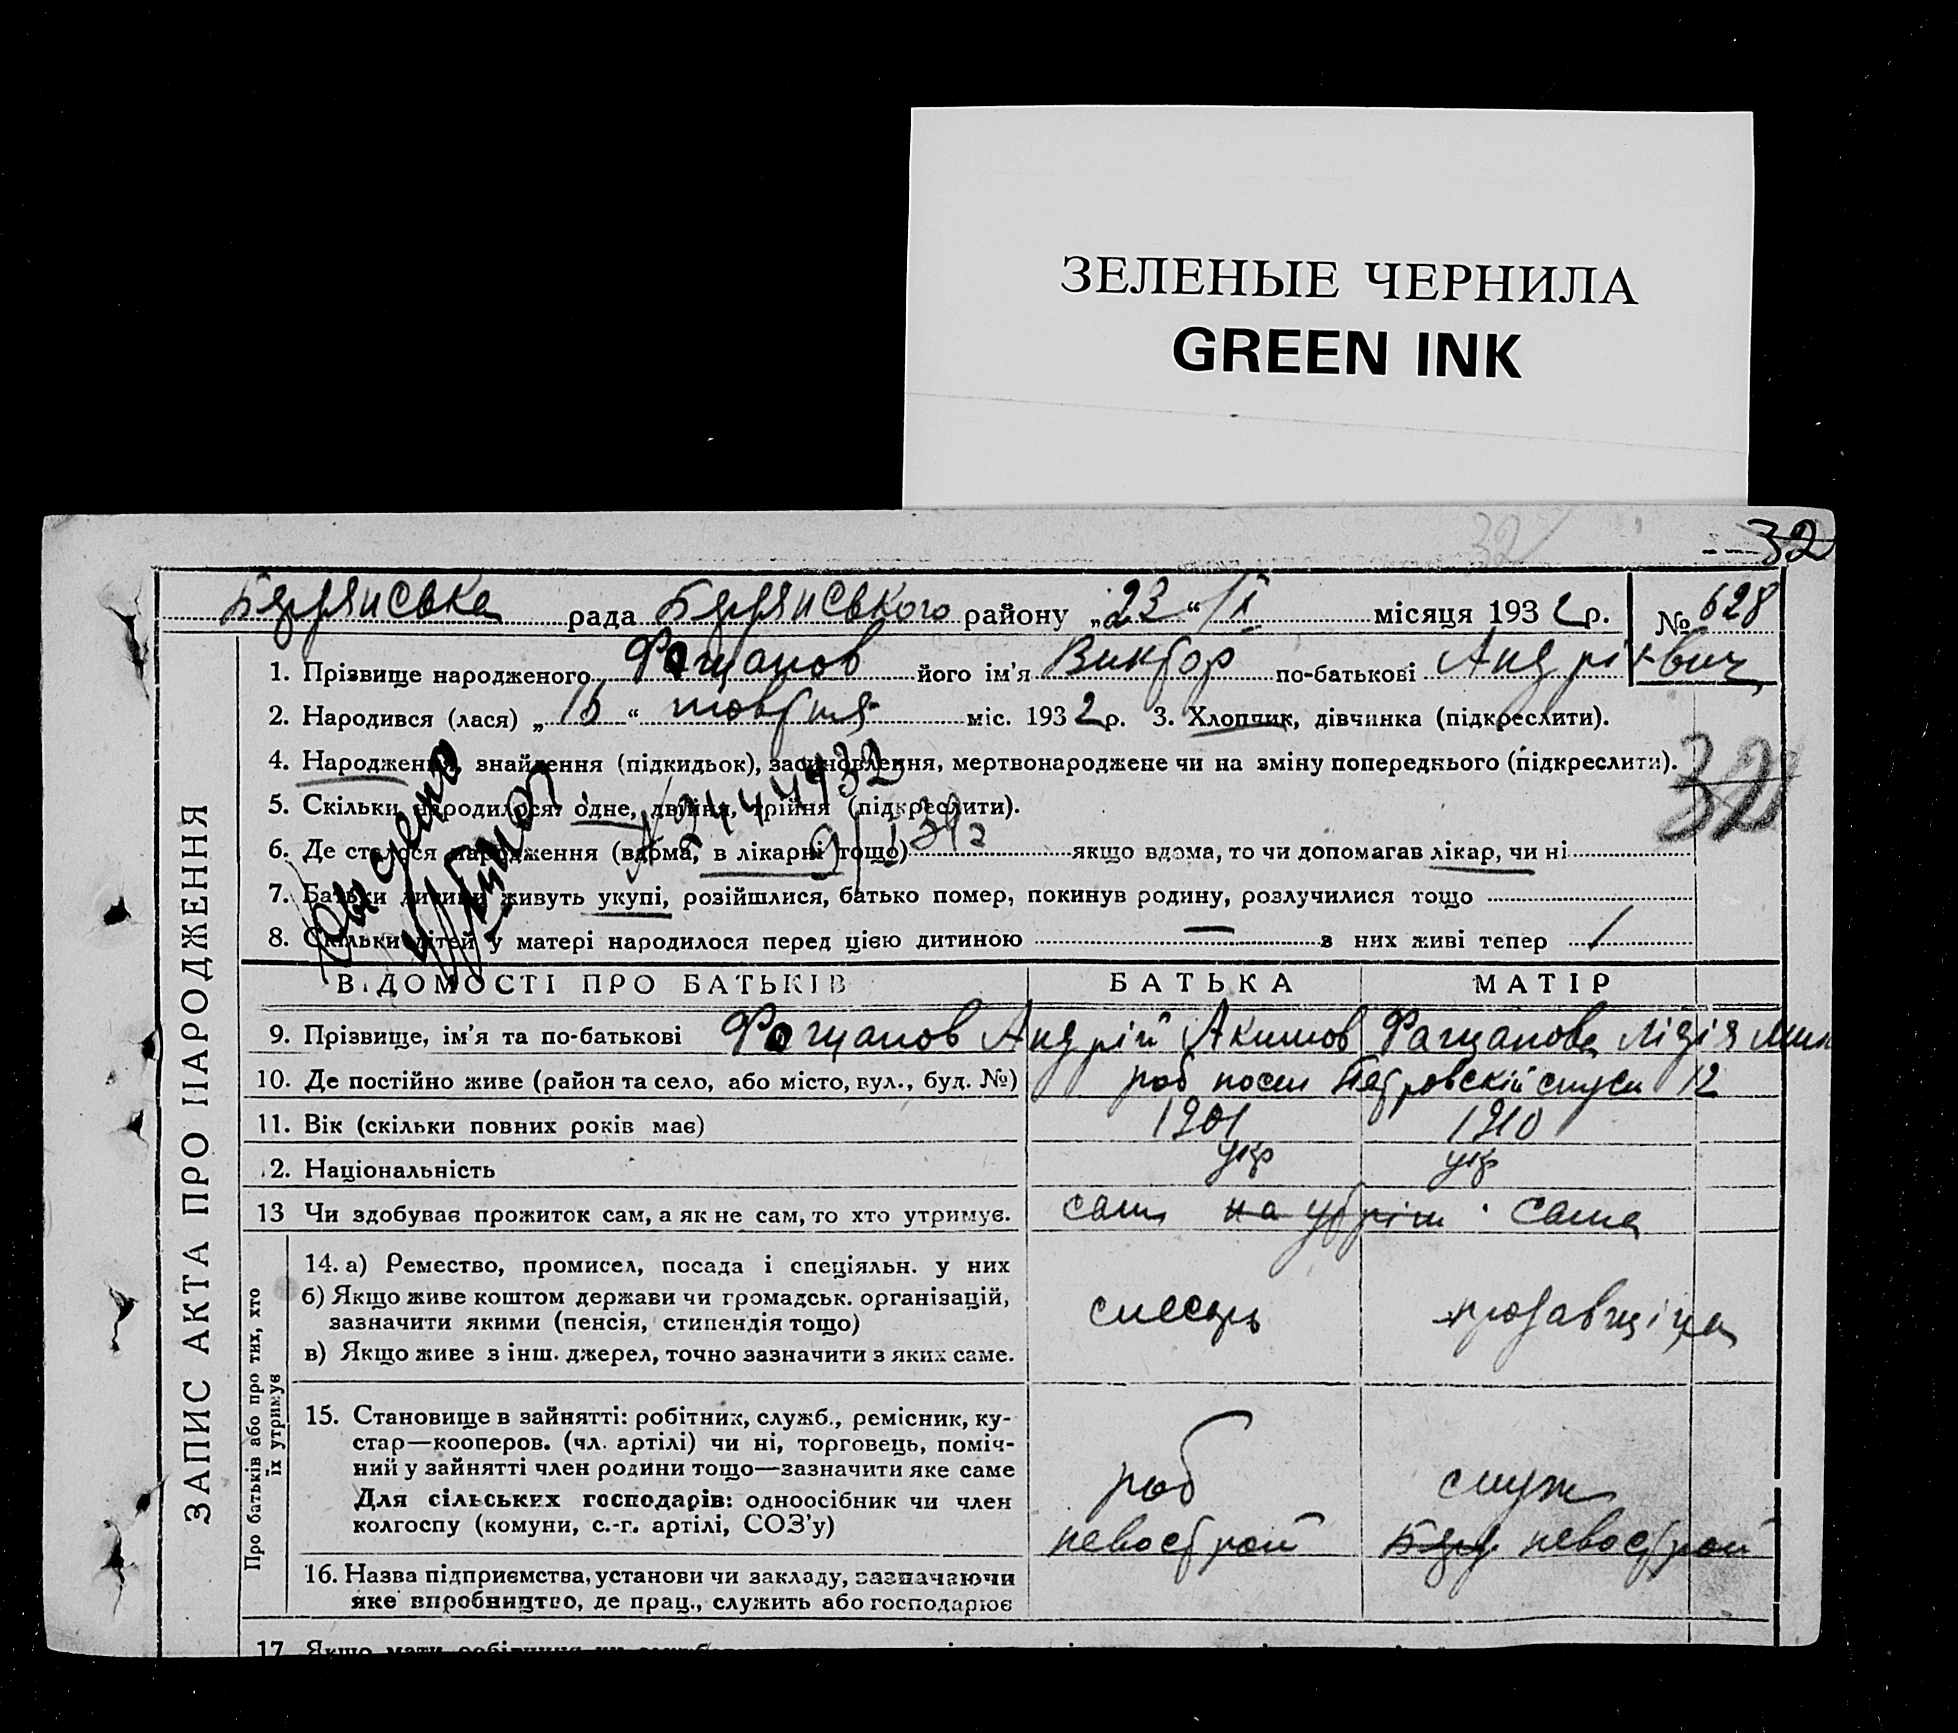 ЗЕЛЕНЫЕ ЧЕРНИЛА
GREEN INK
32
32
Бердянська рада Бердянського району „23“ / X місяця 1932 р. № 628
1. Прізвище народженого Фащанов його ім'я Виктор по-батькові Андрієвич
2. Народився (лася) „ “ жовтня міс. 1932 р. 3. Хлопчик, дівчинка (підкреслити).
4. Народження, знайдення (підкидьок), засиновлення, мертвонароджене чи на зміну попереднього (підкреслити).
32
5. Скільки народилося: одне, двійня, трійня (підкреслити).
6. Де сталося народження (вдома, в лікарні тощо) якщо вдома, то чи допомагав лікар, чи ні
7. Батьки дитини живуть укупі, розійшлися, батько помер, покинув родину, розлучилися тощо
8. Скільки дітей у матері народилося перед цією дитиною — з них живі тепер 1
ВІДОМОСТІ ПРО БАТЬКІВ БАТЬКА МАТІР
9. Прізвище, ім'я та по-батькові Фащанов Андрій Акимов Фащанова Лідія
10. Де постійно живе (район та село, або місто, вул., буд. №) роб посел 12
11. Вік (скільки повних років має) 1901 1910
12. Національність укр укр
13 Чи здобував прожиток сам, а як не сам, то хто утримує. сам на утрім сама
14. а) Ремество, промисел, посада і спеціяльн. у них
б) Якщо живе коштом держави чи громадськ. організацій,
зазначити якими (пенсія, стипендія тощо) слесарь продавщіца
в) Якщо живе з інш. джерел, точно зазначити з яких саме.
15. Становище в зайнятті: робітник, служб., ремісник, ку-
стар—кооперов. (чл. артілі) чи ні, торговець, поміч-
ний у зайнятті член родини тощо—зазначити яке саме роб служ
Для сільських господарів: одноосібник чи член
колгоспу (комуни, с.-г. артілі, СОЗ'у)
16. Назва підприємства, установи чи закладу, зазначаючи
яке виробництво, де прац., служить або господарює
17. Якщо мати
ЗАПИС АКТА ПРО НАРОДЖЕННЯ
Про батьків або про тих, хто
їх утримує